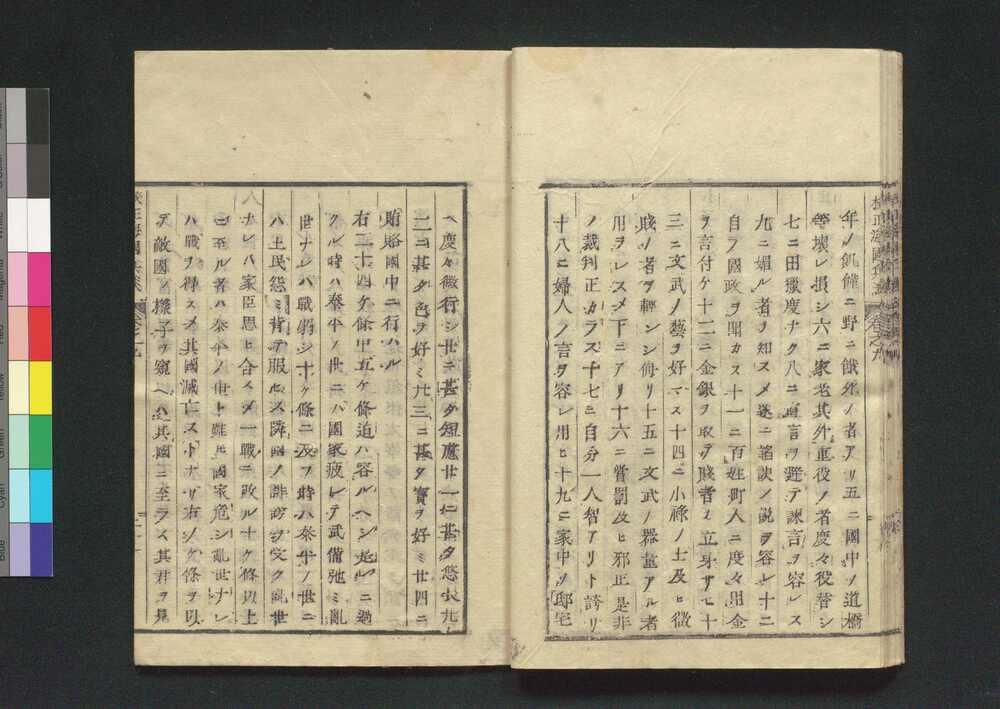 校正海國兵談 卷之九
年ノ飢饉ニ野ニ餓死ノ者アリ五ニ國中ノ道橋
等壊レ損シ六ニ家老其外重役ノ者度々役替シ
七ニ田獵度ナク八ニ直言ヲ避テ諫言ヲ容レス
九ニ媚ル者ヲ知スメ遂ニ諂諛ノ説ヲ容レ十ニ
自ラ國政ヲ聞カス十一ニ百姓町人ニ度々出金
ヲ言付ケ十二ニ金銀ヲ取テ賤者ヲ立身サセ十
三ニ文武ノ藝ヲ好マス十四ニ小祿ノ士及ヒ微
賤ノ者ヲ輕シシ侮リ十五ニ文武ノ器量アル者
用ヲレスメ下ニアリ十六ニ賞罰及ヒ邪正是非
ノ裁判正カラス十七ニ自分一人智アリト誇リ
十八ニ婦人ノ言ヲ容レ用ヒ十九ニ家中ヲ邸宅
ヘ度々微行シ廿ニ甚タ短慮廿一ニ甚タ悠長廿
二ニ甚タ色ヲ好ミ廿三ニ甚タ寳ヲ好ミ廿四ニ
賄賂國中ニ行ハル
右二十四ケ條中五ケ條迫ハ容ルヘシ是ニ過
クル時ハ泰平ノ世ニハ國家疲レテ武備弛ミ亂
世ナレハ戰弱シ十ケ條ニ及フ時ハ泰平ノ世ニ
ハ士民怨ミ背テ服セス隣國ノ誹謗ヲ受ク亂世
ナレハ家臣思ヒ合スメ一戰ニ敗ル十ケ條以上
ニ至ル者ハ泰平ノ世ト雖モ國家危シ亂世ナレ
ハ戰ヲ待スメ其國滅亡ストナリ右ノケ條ヲ以
テ敵國ノ樣子ヲ窺ヘハ其國ニ至ラス其君ヲ見
校正海國兵談 卷之九